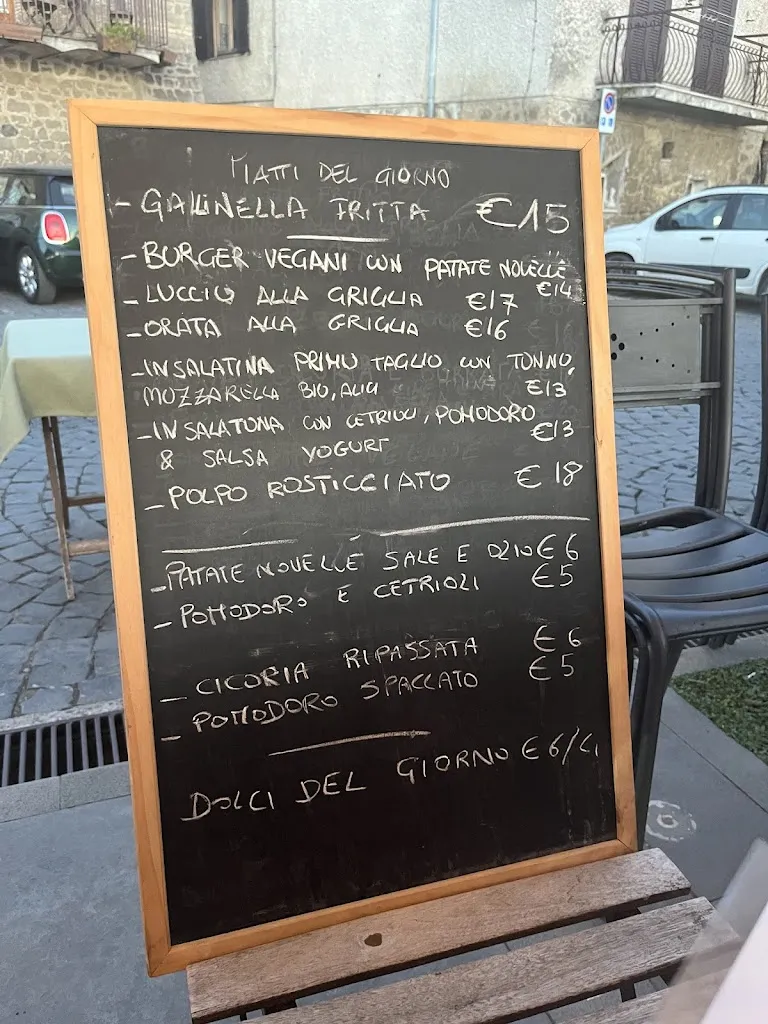 PIATTI DEL GIORNO
- GALLINELLA FRITTA €15
- BURGER VEGANI CON PATATE NOVELLE
€14
- LUCCIO ALLA GRIGLIA €17
- ORATA ALLA GRIGLIA €16
- INSALATINA PRIMO TAGLIO CON TONNO,
MOZZARELLA BIO, ALICI €13
- INSALATONA CON CETRIOLI, POMODORO
€13
& SALSA YOGURT
- POLPO ROSTICCIATO €18
- PATATE NOVELLE SALE E OLIO €6
- POMODORO E CETRIOLI €5
- CICORIA RIPASSATA €6
- POMODORO SPACCATO €5
DOLCI DEL GIORNO €6/